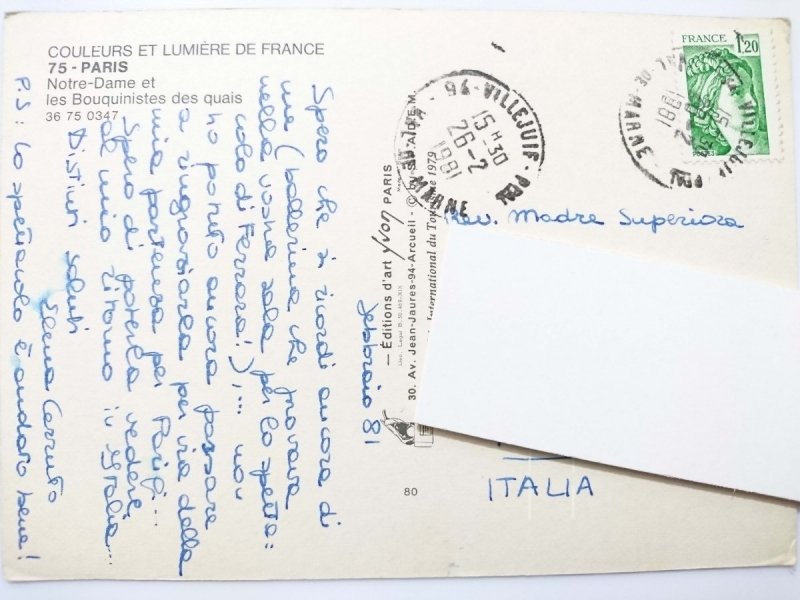 COULEURS ET LUMIÈRE DE FRANCE
75 - PARIS
Notre-Dame et
les Bouquinistes des quais
36 75 0347
febbraio 81
Spero che si ricordi ancora di
me (ballerina che provava
nella vostra sala per lo spetta=
colo di Ferrara!),... non
ho potuto ancora passare
a ringraziarla per via della
mia partenza per Parigi...
Spero di poterla vedere
al mio ritorno in Italia...
Distinti saluti
Elena
P.S: Lo spettacolo è andato bene!
— Éditions d'art yvon PARIS
30. Av. Jean-Jaurès-94-Arcueil -
International du Tourisme 1979
80
FRANCE
1,20
POSTES
94 - VILLEJUIF - PPAL
15 H 30
26-2
1981
VAL DE MARNE
Rev. Madre Superiora
ITALIA